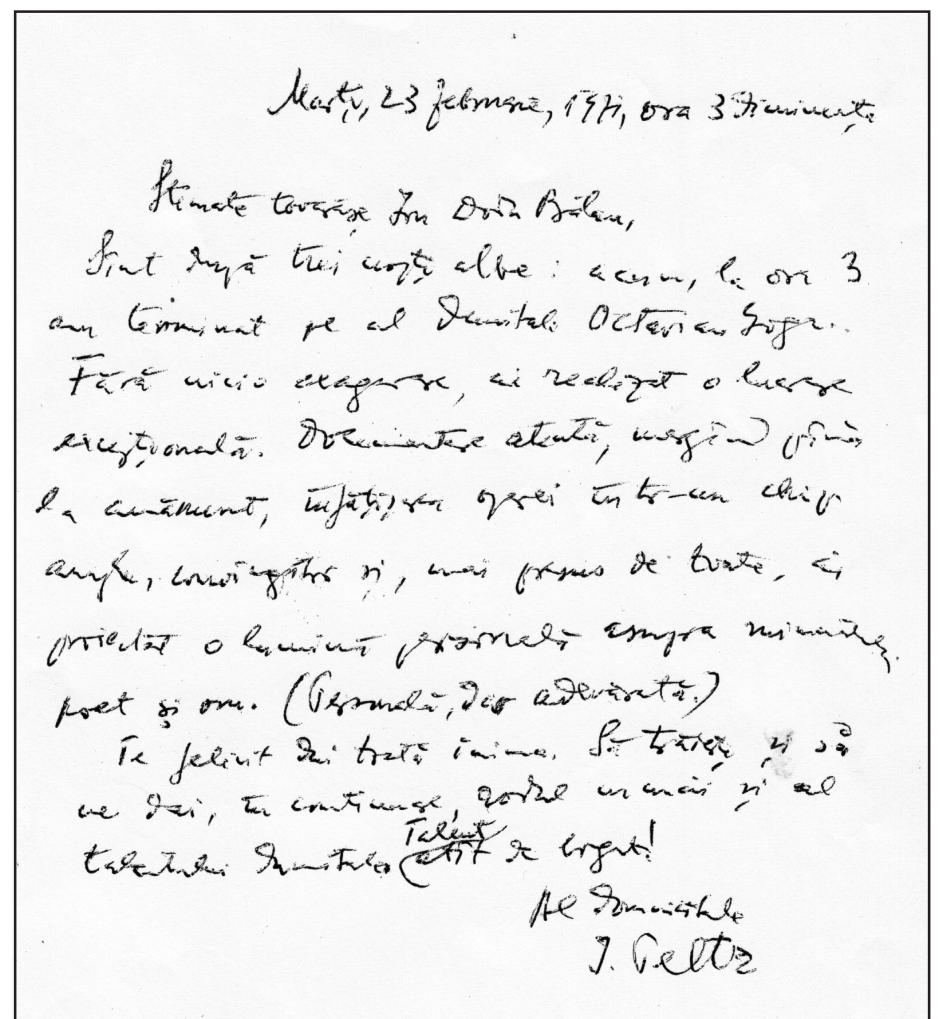 Marți, 23 februarie, 1971, ora 3 dimineața
Stimate tovarășe Ion Dodu Bălan,
Sînt după trei nopți albe: acum, la ora 3
am terminat pe al dumitale Octavian Goga..
Fără nicio exagerare, ai realizat o lucrare
excepțională. Documentare atentă, mergînd pînă
la amănunt, înfățișarea operei într-un chip
amplu, convingător și, mai presus de toate, ai
proiectat o lumină personală asupra
poet și om. (Personală, dar adevărată.)
Te felicit din toată inima. Să trăiești și să
ne dai, în continuare, rodul muncii și al
talentului dumitale (talent atît de bogat!
Al dumitale
I. Peltz